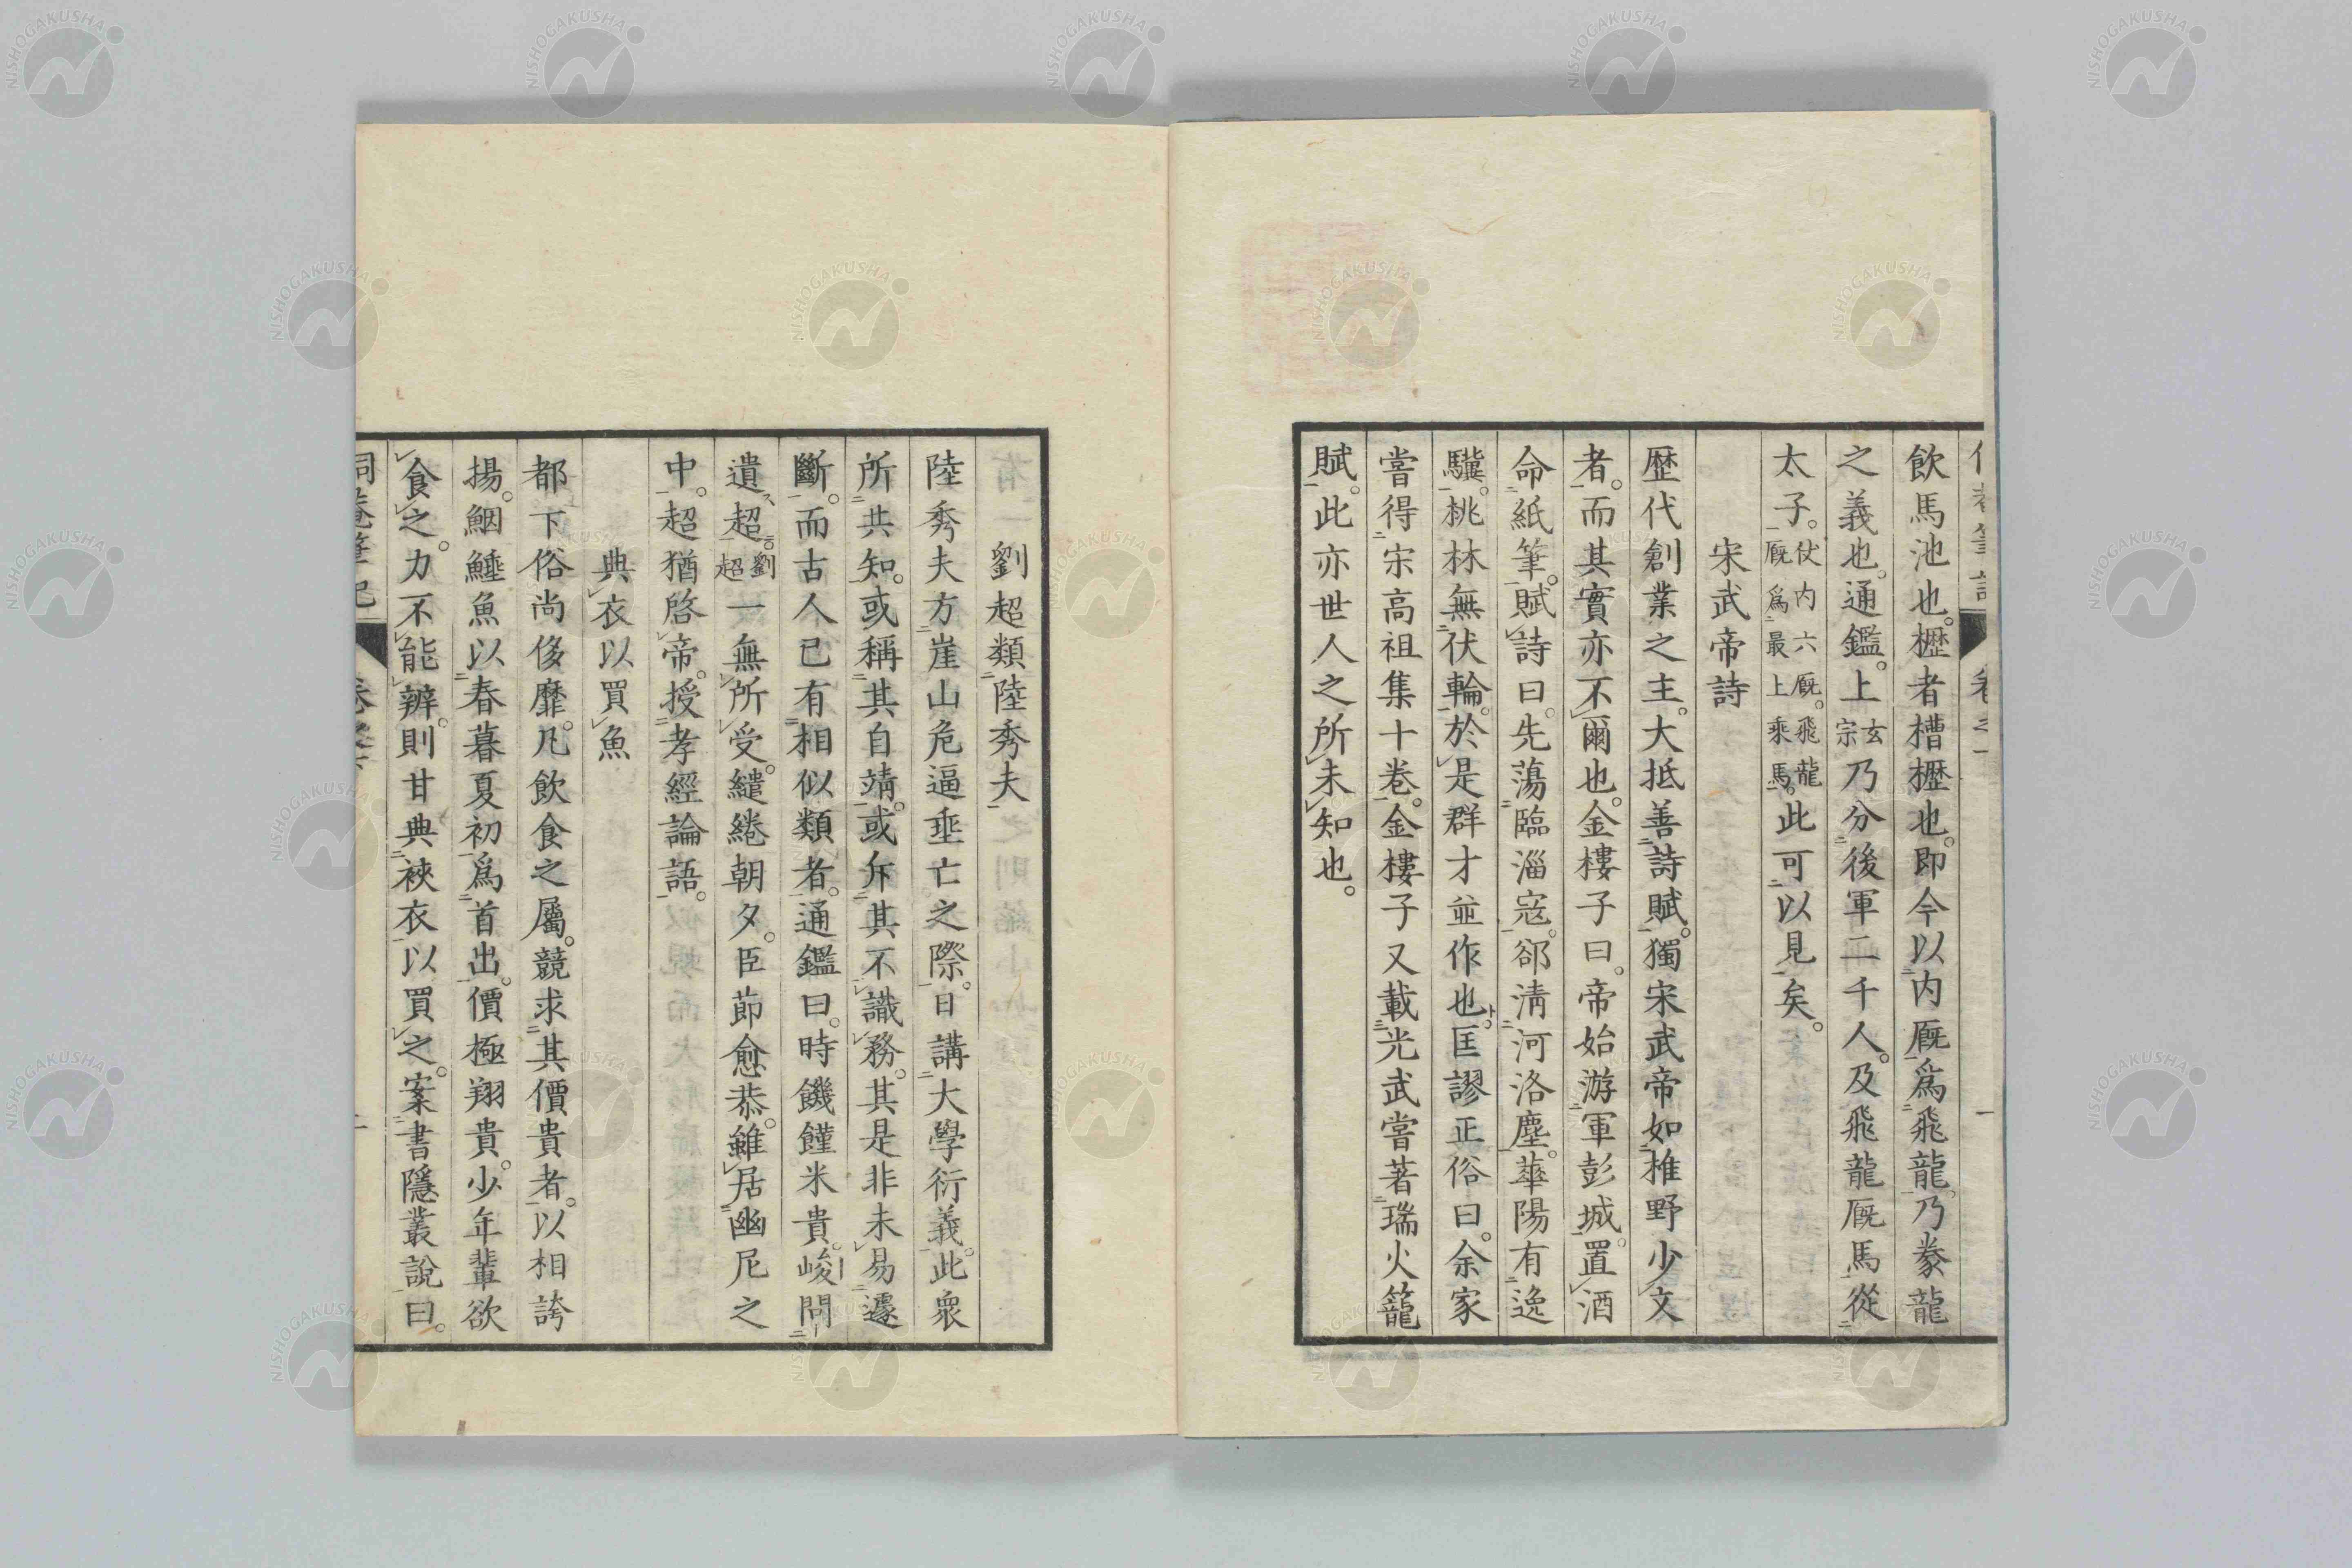 飲馬池也。櫪者槽櫪也。即今以内厩爲飛龍。乃豢龍
之義也。通鑑。上玄宗乃分後軍二千人。及飛龍厩馬從
太子。伏内六厩。飛龍厩爲最上乘馬。此可以見矣。
宋武帝詩
歷代創業之主。大抵善詩賦。獨宋武帝如椎野少文
者。而其實亦不爾也。金樓子曰。帝始游軍彭城。置酒
命紙筆。賦詩曰。先蕩臨淄寇。郤淸河洛塵。華陽有逸
驥。桃林無伏輪。於是群才並作也。匡謬正俗曰。余家
嘗得宋高祖集十卷。金樓子又載光武嘗著瑞火籠
賦。此亦世人之所未知也。
劉超類陸秀夫
陸秀夫方崖山危逼垂亡之際。日講大學衍義。此衆
所共知。或稱其自靖。或斥其不識務。其是非未易遽
斷。而古人已有相似類者。通鑑曰。時饑饉米貴。峻問
遺超。劉超一無所受。繾綣朝夕。臣節愈恭。雖居幽厄之
中。超猶啓帝。授孝經論語。
典衣以買魚
都下俗尚侈靡。凡飲食之屬。競求其價貴者。以相誇
揚。鮂鯹魚以春暮夏初爲首出。價極翔貴。少年輩欲
食之。力不能辨。則甘典裌衣以買之。案書隱叢說曰。
侗菴筆記
NISHOGAKUSHA